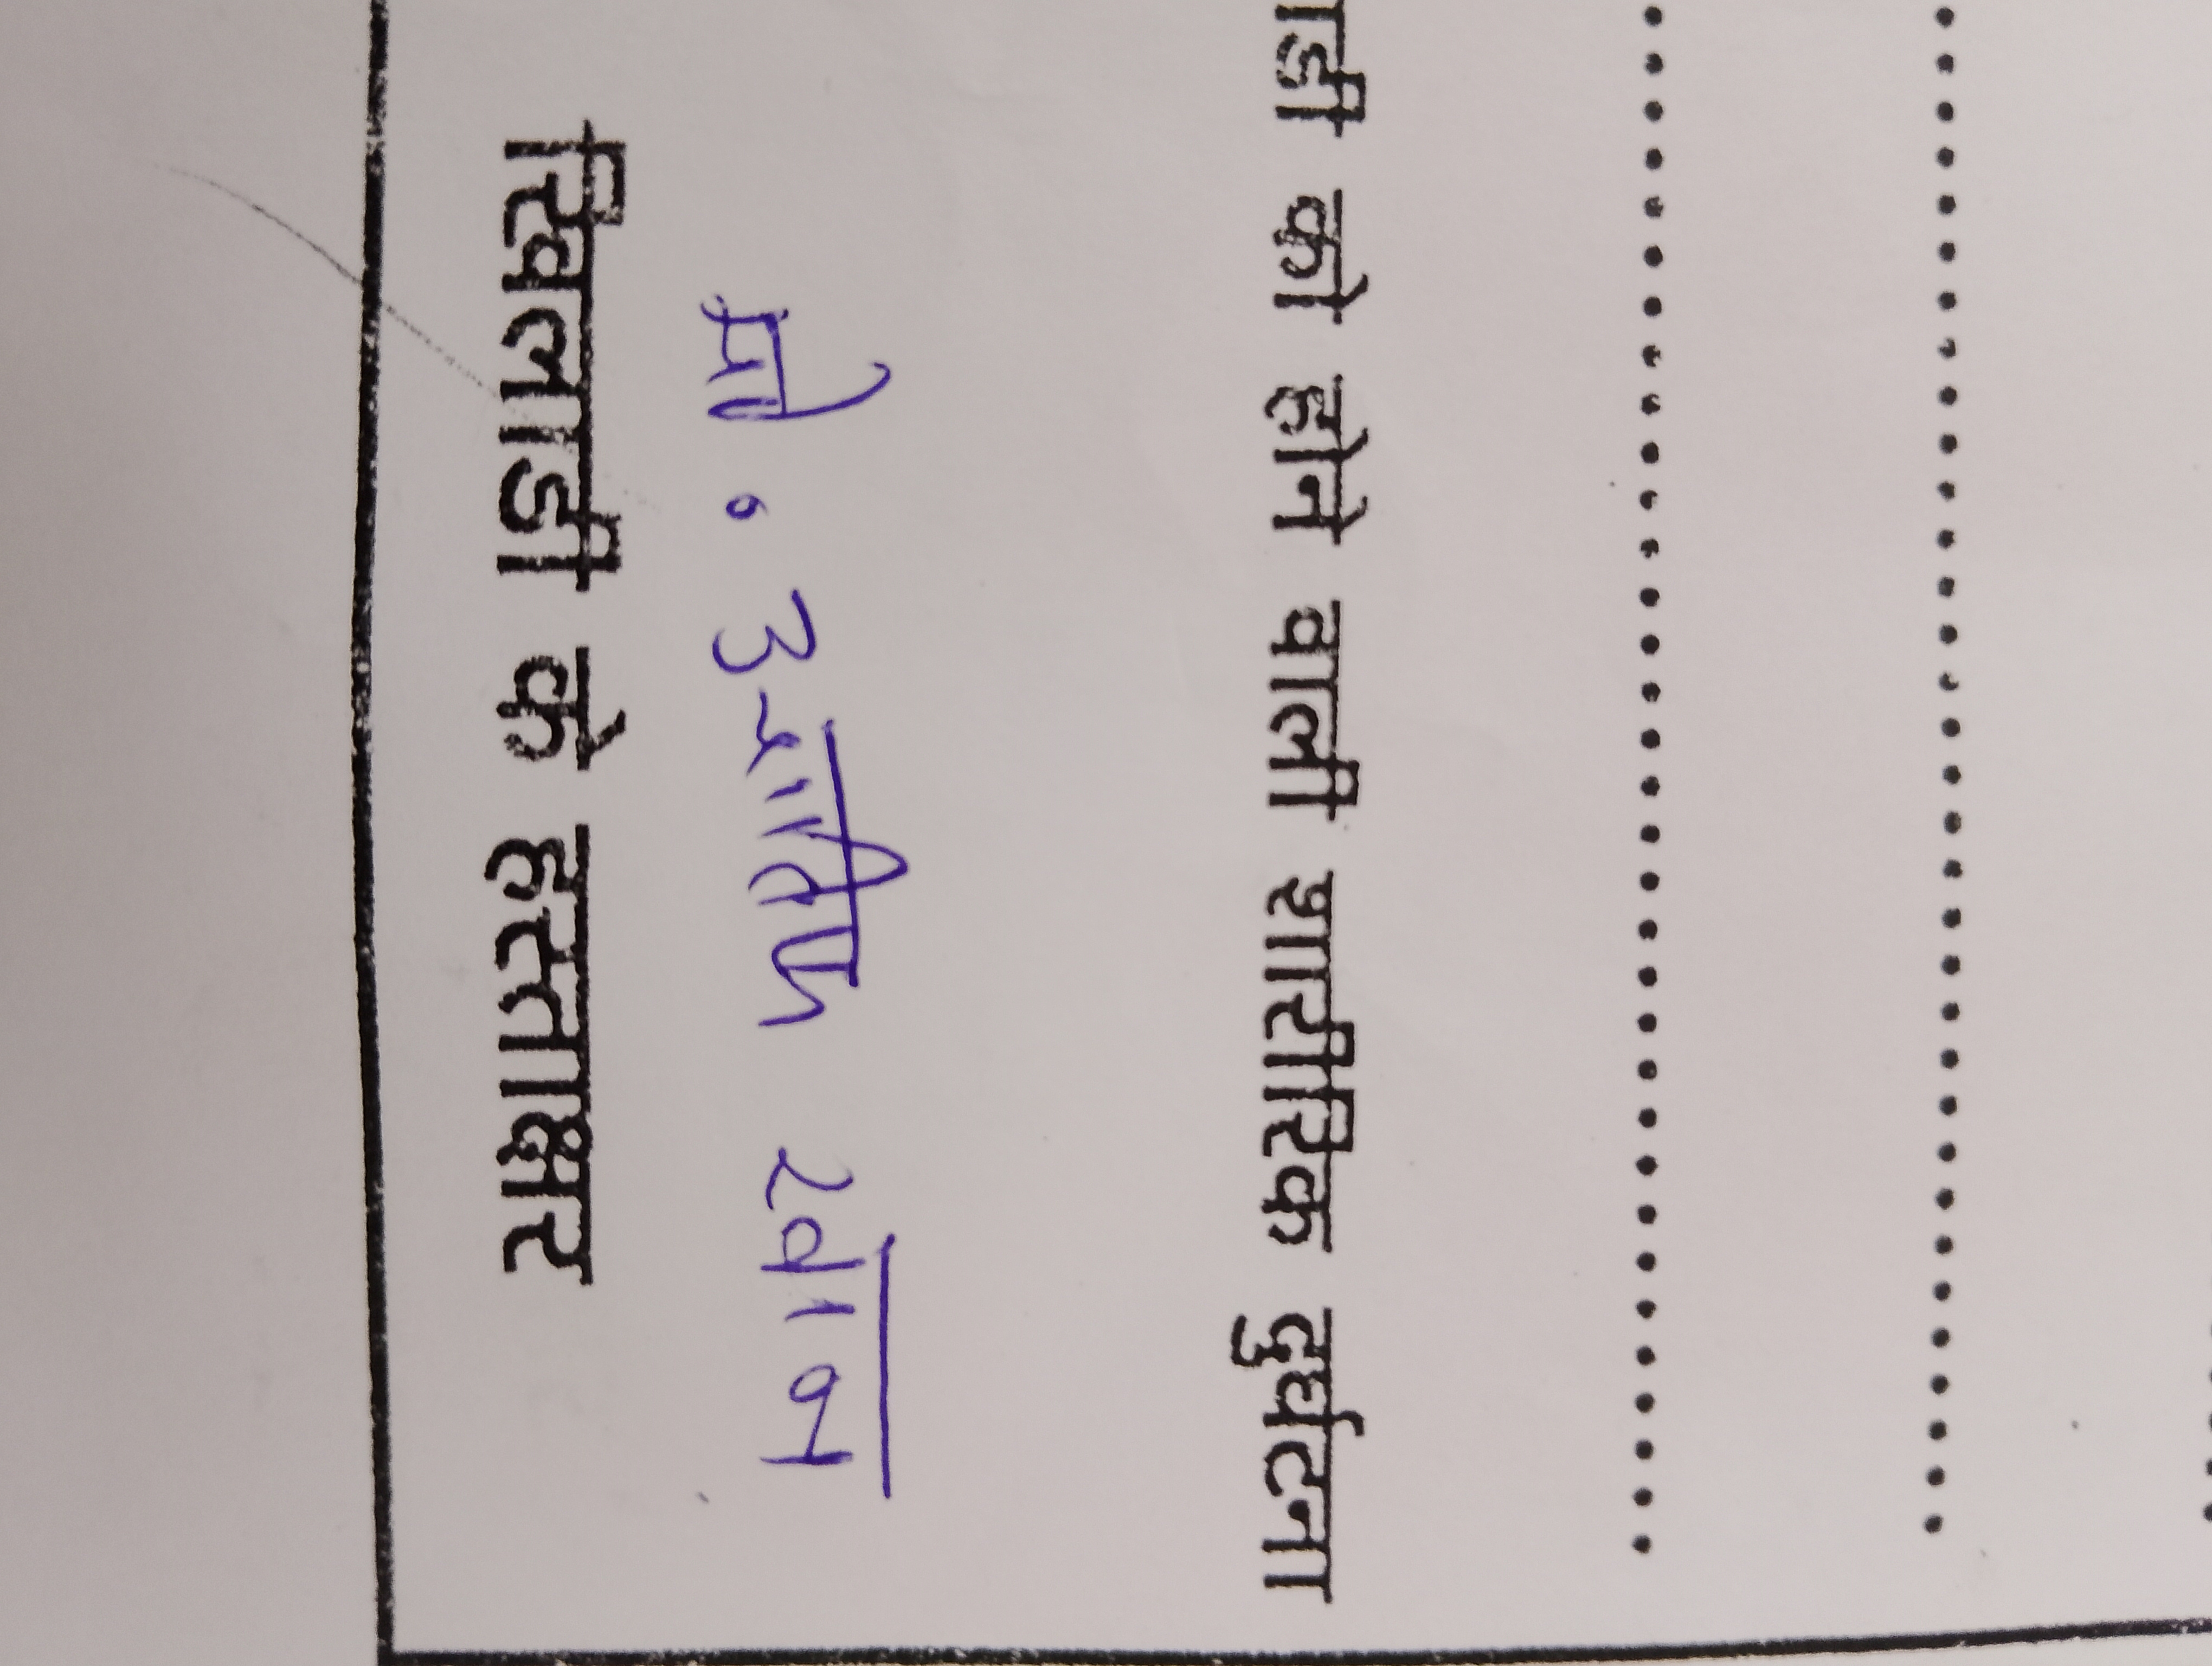 ाडी को होने वाली शारीरिक दुर्घटना
मो. आतिफ खान
खिलाडी के हस्ताक्षर